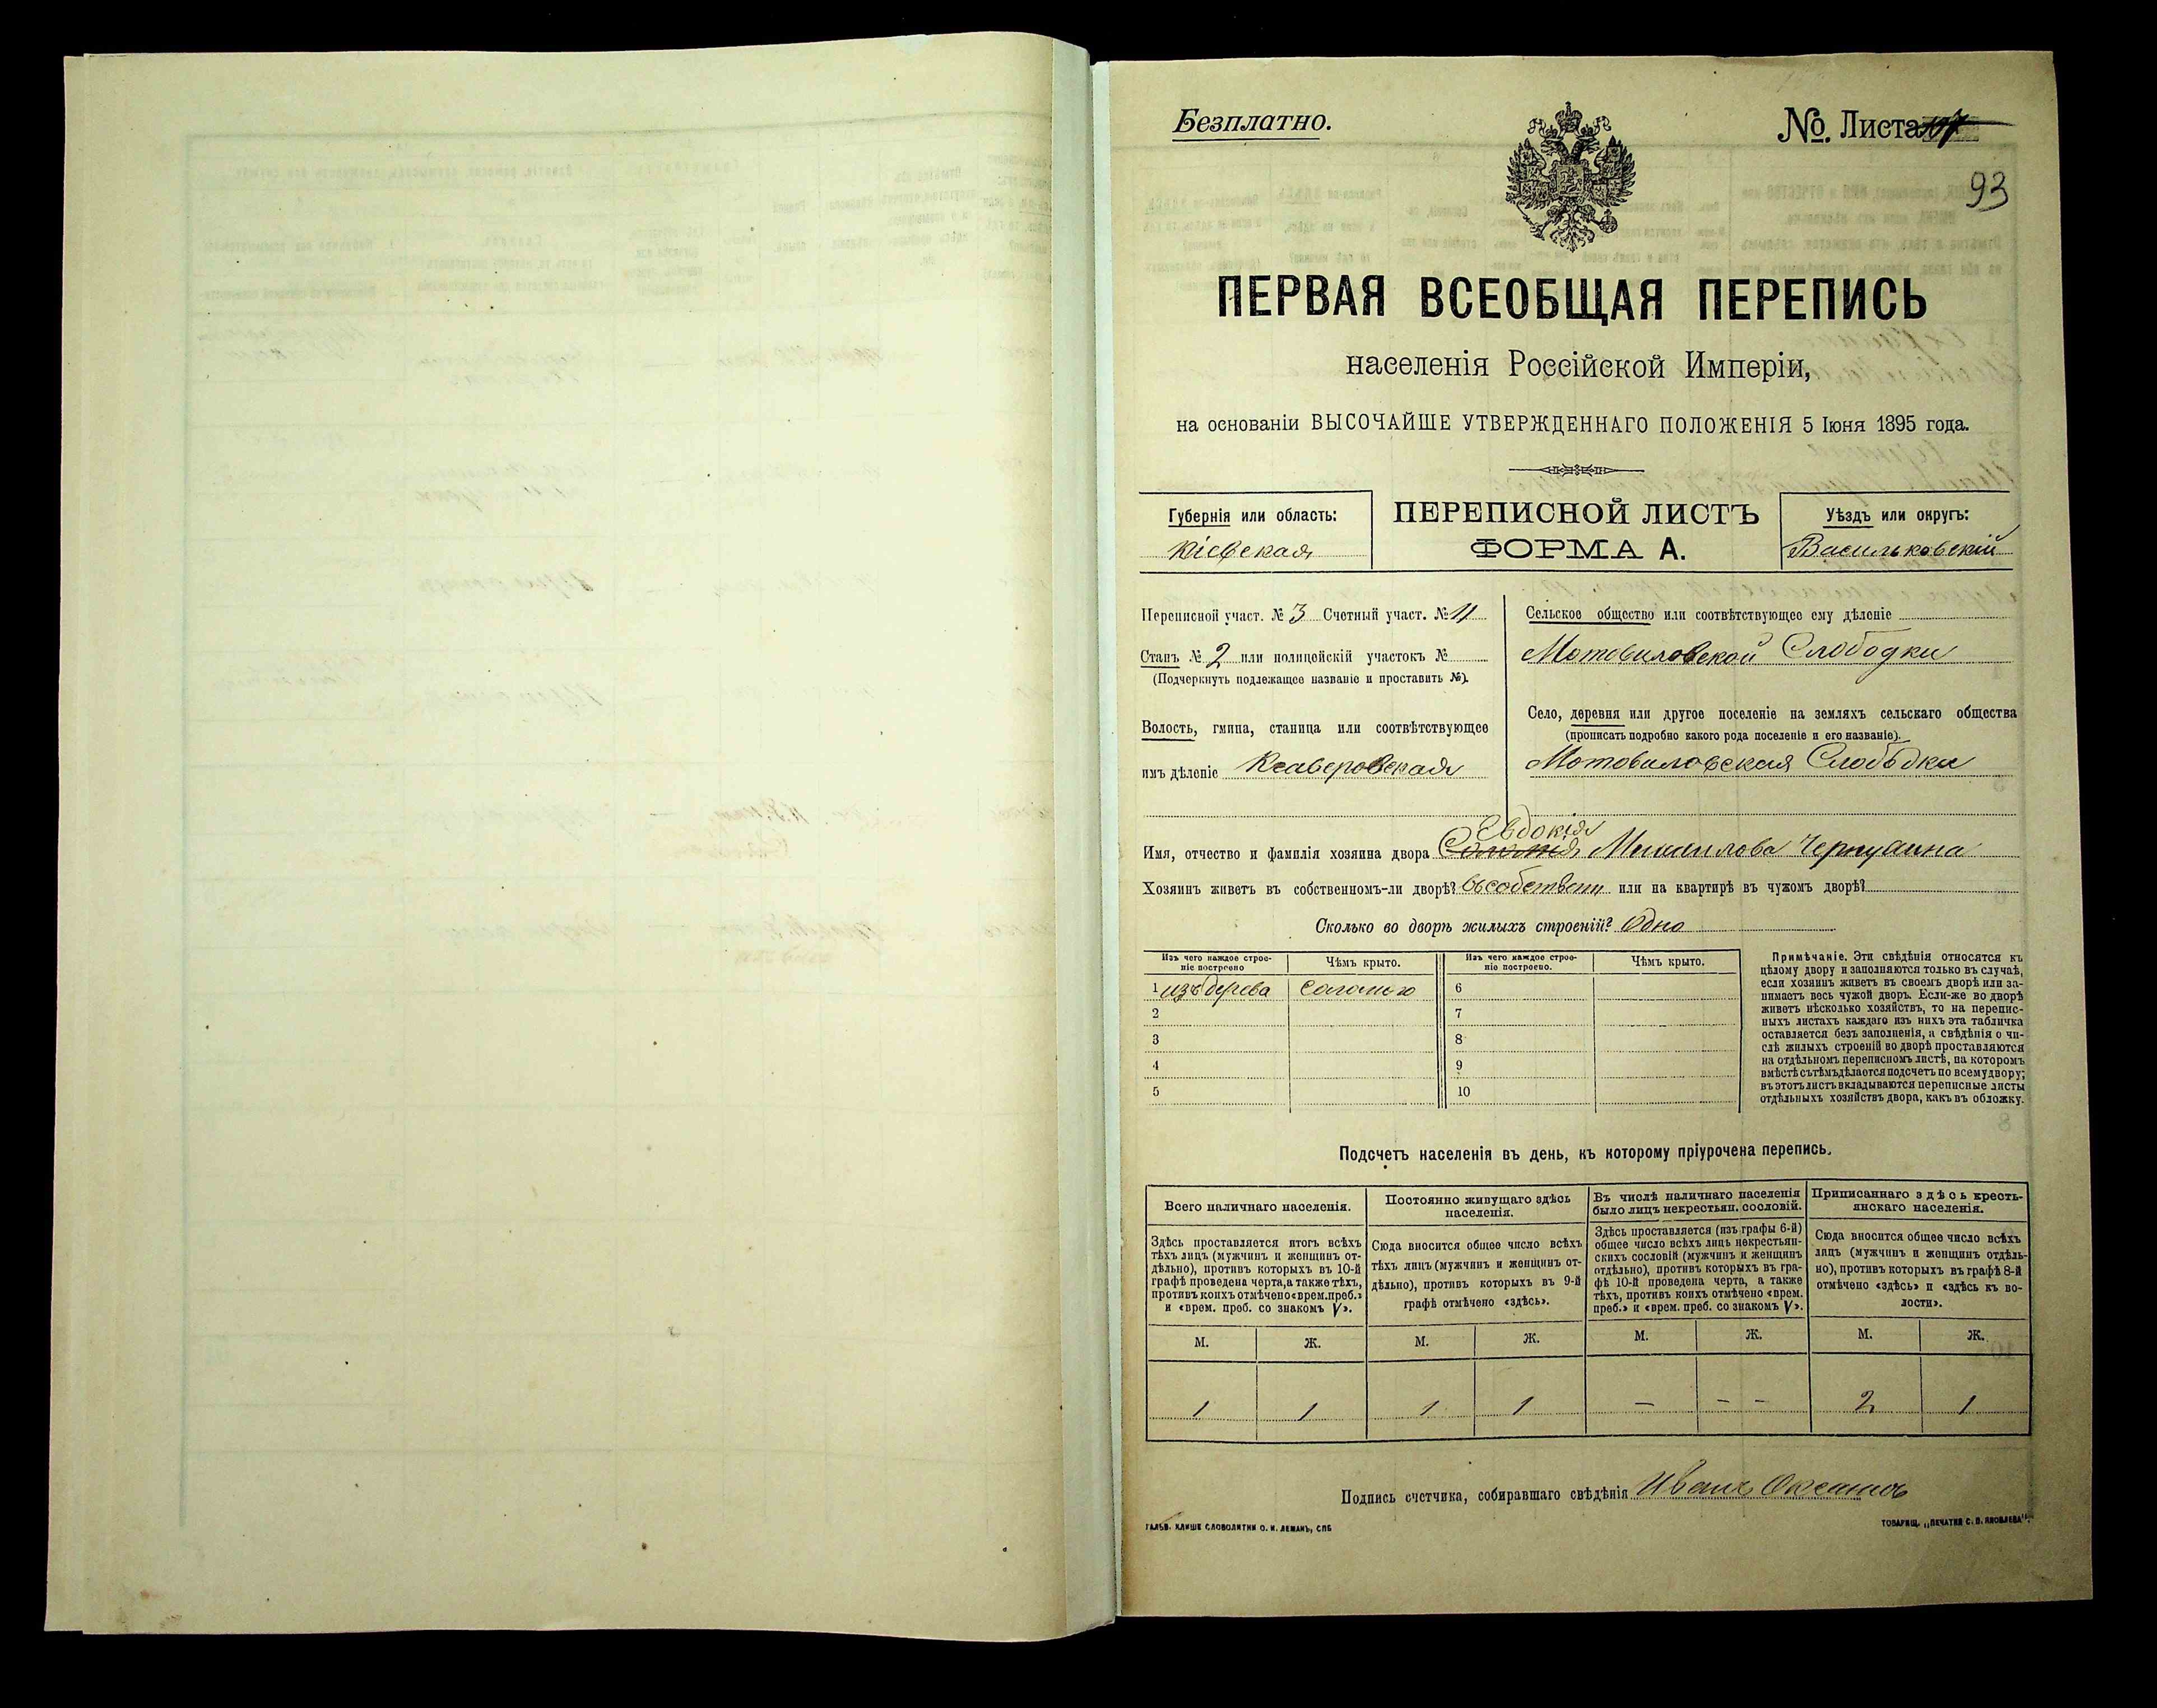 Безплатно.
№. Листа 107
93
ПЕРВАЯ ВСЕОБЩАЯ ПЕРЕПИСЬ
населенія Россійской Имперіи,
на основаніи ВЫСОЧАЙШЕ УТВЕРЖДЕННАГО ПОЛОЖЕНІЯ 5 Іюня 1895 года.
Губернія или область:
Кіевская
ПЕРЕПИСНОЙ ЛИСТЪ
ФОРМА А.
Уѣздъ или округъ:
Васильковскій
Переписной участ. № 3 Счетный участ. № 11
Станъ № 2 или полицейскій участокъ №
(Подчеркнуть подлежащее названіе и проставить №).
Волость, гмина, станица или соотвѣтствующее
имъ дѣленіе Ксаверовская
Сельское общество или соотвѣтствующее ему дѣленіе
Мотовиловской Слободки
Село, деревня или другое поселеніе на земляхъ сельскаго общества
(прописать подробно какого рода поселеніе и его названіе).
Мотовиловская Слободка
Евдокія
Имя, отчество и фамилія хозяина двора Соломія Михаилова
Хозяинъ живетъ въ собственномъ-ли дворѣ? въ собствен или на квартирѣ въ чужомъ дворѣ?
Сколько во дворѣ жилыхъ строеній? Одно
Изъ чего каждое строе-
ніе построено
Чѣмъ крыто.
Изъ чего каждое строе-
ніе построено.
Чѣмъ крыто.
1 изъ дерева соломою 6
2 7
3 8
4 9
5 10
Примѣчаніе. Эти свѣдѣнія относятся къ
цѣлому двору и заполняются только въ случаѣ,
если хозяинъ живетъ въ своемъ дворѣ или за-
нимаетъ весь чужой дворъ. Если-же во дворѣ
живетъ нѣсколько хозяйствъ, то на перепис-
ныхъ листахъ каждаго изъ нихъ эта табличка
оставляется безъ заполненія, а свѣдѣнія о чи-
слѣ жилыхъ строеній во дворѣ проставляются
на отдѣльномъ переписномъ листѣ, на которомъ
вмѣстѣ съ тѣмъ дѣлается подсчетъ по всему двору;
въ этотъ листъ вкладываются переписные листы
отдѣльныхъ хозяйствъ двора, какъ въ обложку.
Подсчетъ населенія въ день, къ которому пріурочена перепись.
Всего наличнаго населенія.
Здѣсь проставляется итогъ всѣхъ
тѣхъ лицъ (мужчинъ и женщинъ от-
дѣльно), противъ которыхъ въ 10-й
графѣ проведена черта, а также тѣхъ,
противъ коихъ отмѣчено «врем. преб.»
и «врем. преб. со знакомъ V».
Постоянно живущаго здѣсь
населенія.
Сюда вносится общее число всѣхъ
тѣхъ лицъ (мужчинъ и женщинъ от-
дѣльно), противъ которыхъ въ 9-й
графѣ отмѣчено «здѣсь».
Въ числѣ наличнаго населенія
было лицъ некрестьян. сословій.
Здѣсь проставляется (изъ графы 6-й)
общее число всѣхъ лицъ некрестьян-
скихъ сословій (мужчинъ и женщинъ
отдѣльно), противъ которыхъ въ гра-
фѣ 10-й проведена черта, а также
тѣхъ, противъ коихъ отмѣчено «врем.
преб.» и «врем. преб. со знакомъ V».
Приписаннаго здѣсь кресть-
янскаго населенія.
Сюда вносится общее число всѣхъ
лицъ (мужчинъ и женщинъ отдѣль-
но), противъ которыхъ въ графѣ 8-й
отмѣчено «здѣсь» и «здѣсь къ во-
лости».
М. Ж. М. Ж. М. Ж. М. Ж.
1 1 1 1 — — — 2 1
Подпись счетчика, собиравшаго свѣдѣнія Иванъ
ГАЛЬВ. КЛИШЕ СЛОВОЛИТНИ О. И. ЛЕМАНЪ, СПБ
ТОВАРИЩ. „ПЕЧАТНЯ С. П. ЯКОВЛЕВА".